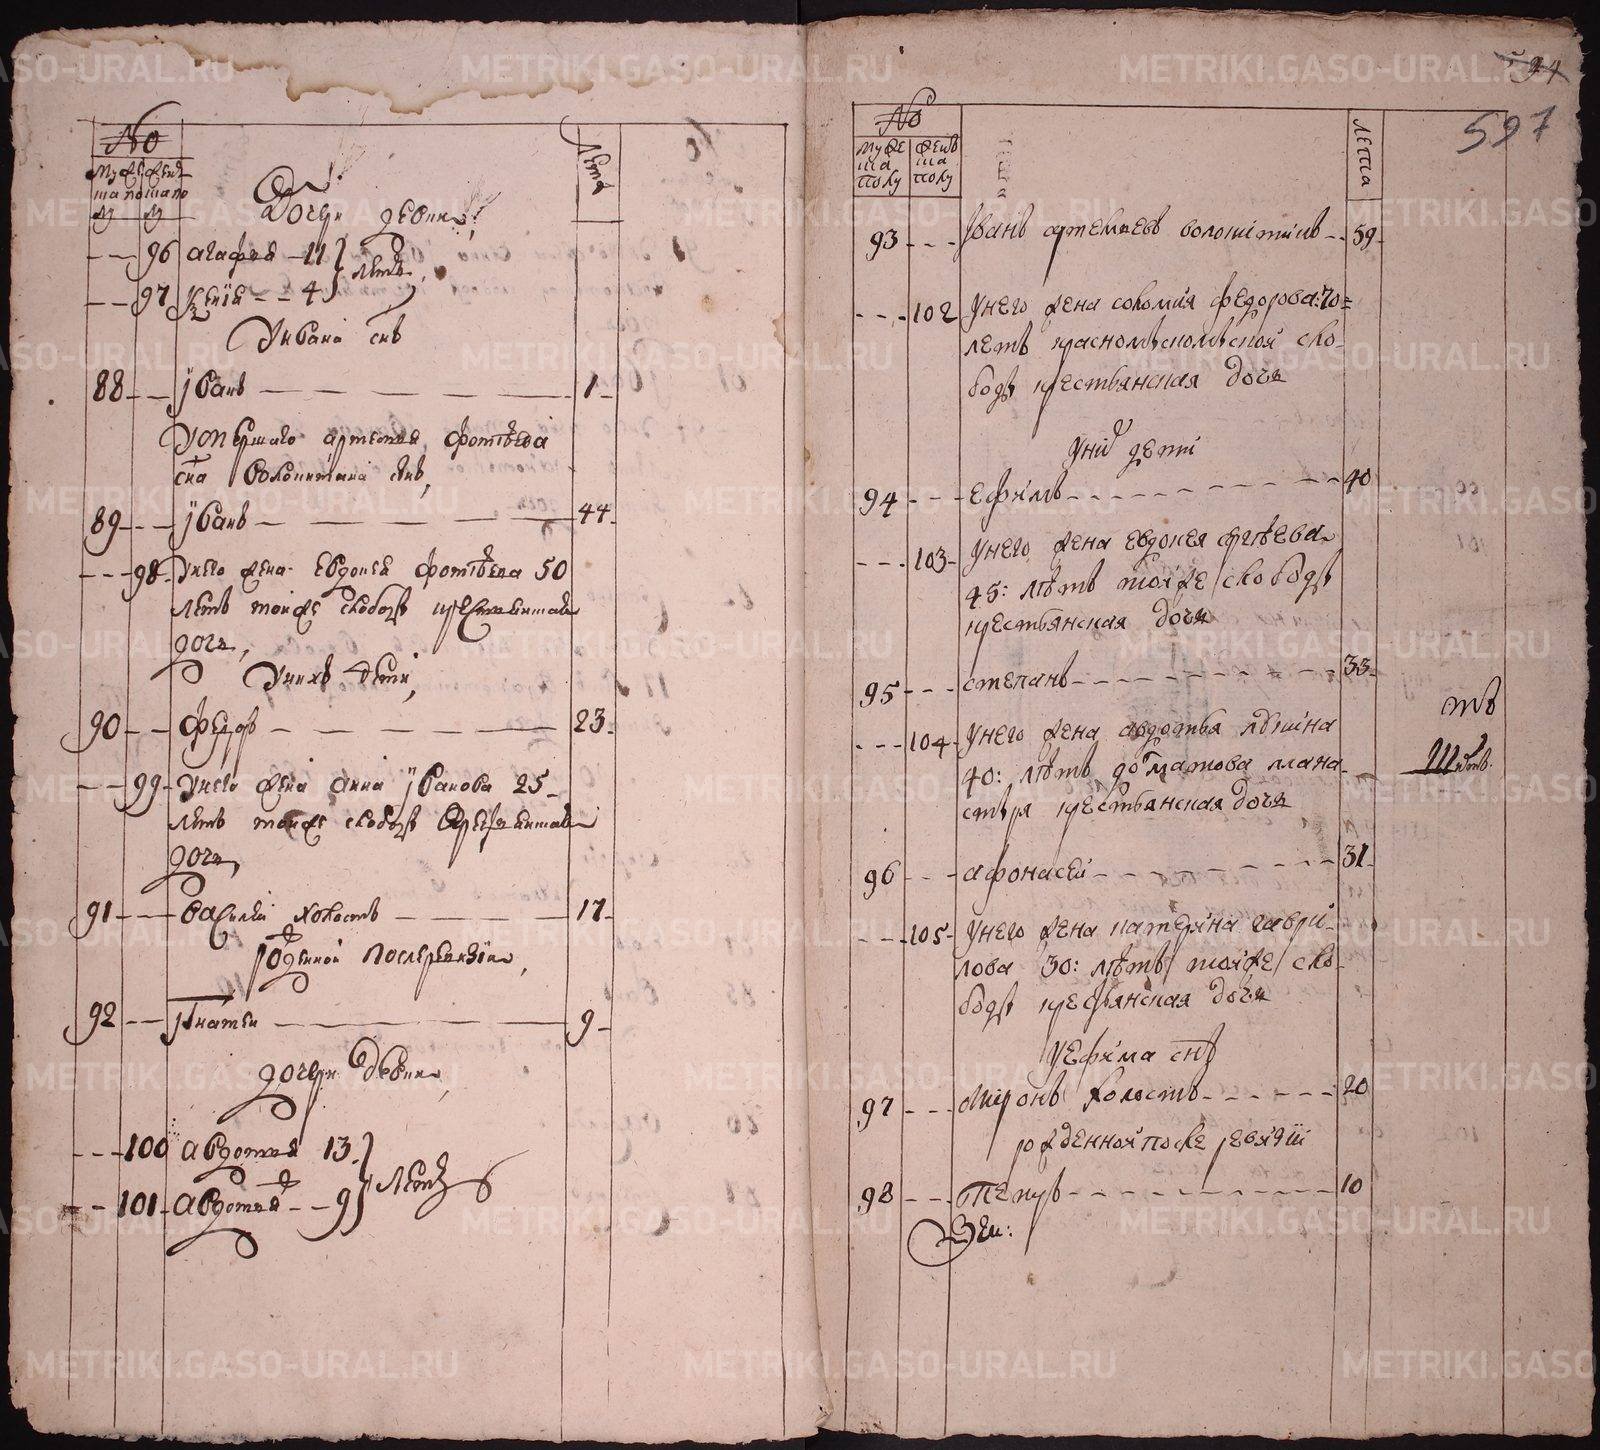 №
мужеска полу
женска полу
лета
Дочери девки
96 агафья 11
97 ксения 4 летъ
У ивана снъ
88 iванъ 1
У умершаго артемья фотѣева
сна волокитина снъ
89 iванъ 44
98 У него жена евдокея фотѣева 50
летъ тоя же слободы крестьянская
дочь
У нихъ дети
90 федоръ 23
99 У него жена анна iванова 25
летъ тоя же слободы крестьянская
дочь
91 василей холостъ 17
рожденной после ревизии
92 Iгнатеи 9
дочери девки
100 авдотья 13
101 авдотья 9 летъ
94
597
№
мужеска полу
женска полу
лета
93 Iванъ артемьевъ волокитинъ 59
102 У него жена соломия федорова 70
летъ красномыской сло-
боды крестьянская дочь
У нихъ дети
94 ефимъ 40
103 У него жена евдокея
45: лѣтъ тояже слободы
крестьянская дочь
95 степанъ 33
104 У него жена авдотья
40: лѣтъ долматова мана-
стыря крестьянская дочь
96 афонасеи 31
105 У него жена катерина гаври-
лова 30: лѣтъ тояже сло-
боды крестьянская дочь
У ефима снъ
97 миронъ холостъ 20
рожденной после ревизии
98 петръ 10